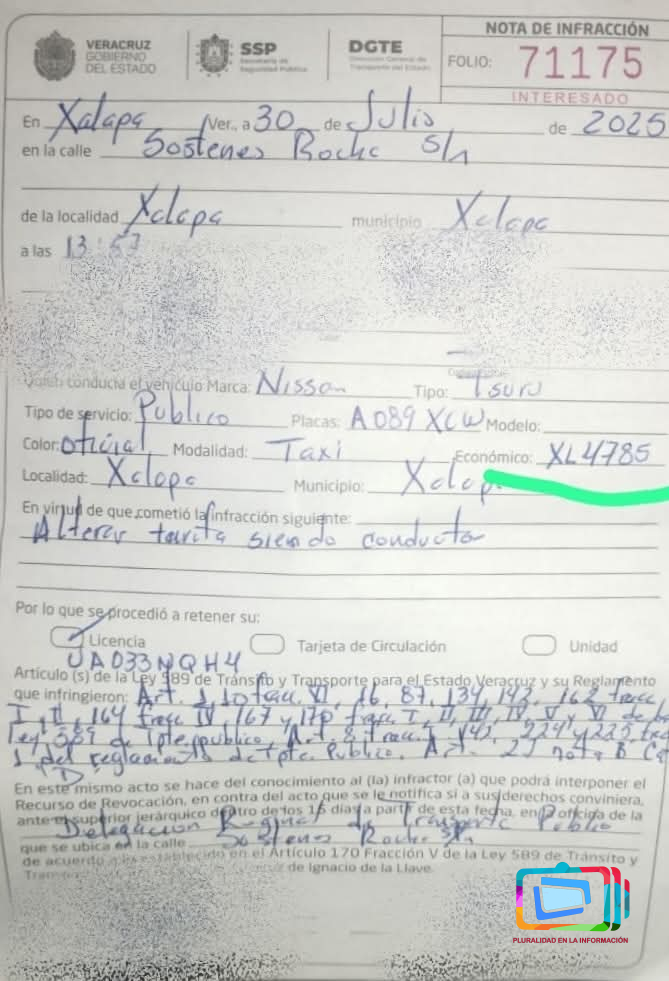 VERACRUZ
GOBIERNO
DEL ESTADO
SSP
Secretaría de
Seguridad Pública
DGTE
Dirección General de
Transporte del Estado
NOTA DE INFRACCIÓN
FOLIO: 71175
INTERESADO
En Xalapa Ver., a 30 de Julio de 2025
en la calle Sostenes Rocha S/n
de la localidad Xalapa municipio Xalapa
a las 13:53
conducía el vehículo Marca: Nissan Tipo: Tsuru
Tipo de servicio: Publico Placas: A089XCW Modelo:
Color: oficial Modalidad: Taxi Económico: XL4785
Localidad: Xalapa Municipio: Xalap
En virtud de que cometió la infracción siguiente:
Alterar tarifa siendo conductor
Por lo que se procedió a retener su:
Licencia Tarjeta de Circulación Unidad
UA033NQH4
Artículo (s) de la Ley 589 de Tránsito y Transporte para el Estado Veracruz y su Reglamento
que infringieron: Art. 1, 10 fracc. VI, 16, 87, 134, 142, 162 fracc
I, II, 164 fracc IV, 167 y 170 fracc I, II, III, IV, V y VI de la
Ley 589 de publico, Art. 8 fracc. 224 y 225
del reglamento de Publico. Art. 27 nota B
En este mismo acto se hace del conocimiento al (la) infractor (a) que podrá interponer el
Recurso de Revocación, en contra del acto que se le notifica si a sus derechos conviniera,
ante el superior jerárquico dentro de los 15 días a partir de esta fecha, en oficina de la
Delegacion Regional de Transporte Publico
que se ubica en la calle Sostenes Rocha S/n
de acuerdo a lo establecido en el Artículo 170 Fracción V de la Ley 589 de Tránsito y
de Ignacio de la Llave.
PLURALIDAD EN LA INFORMACIÓN